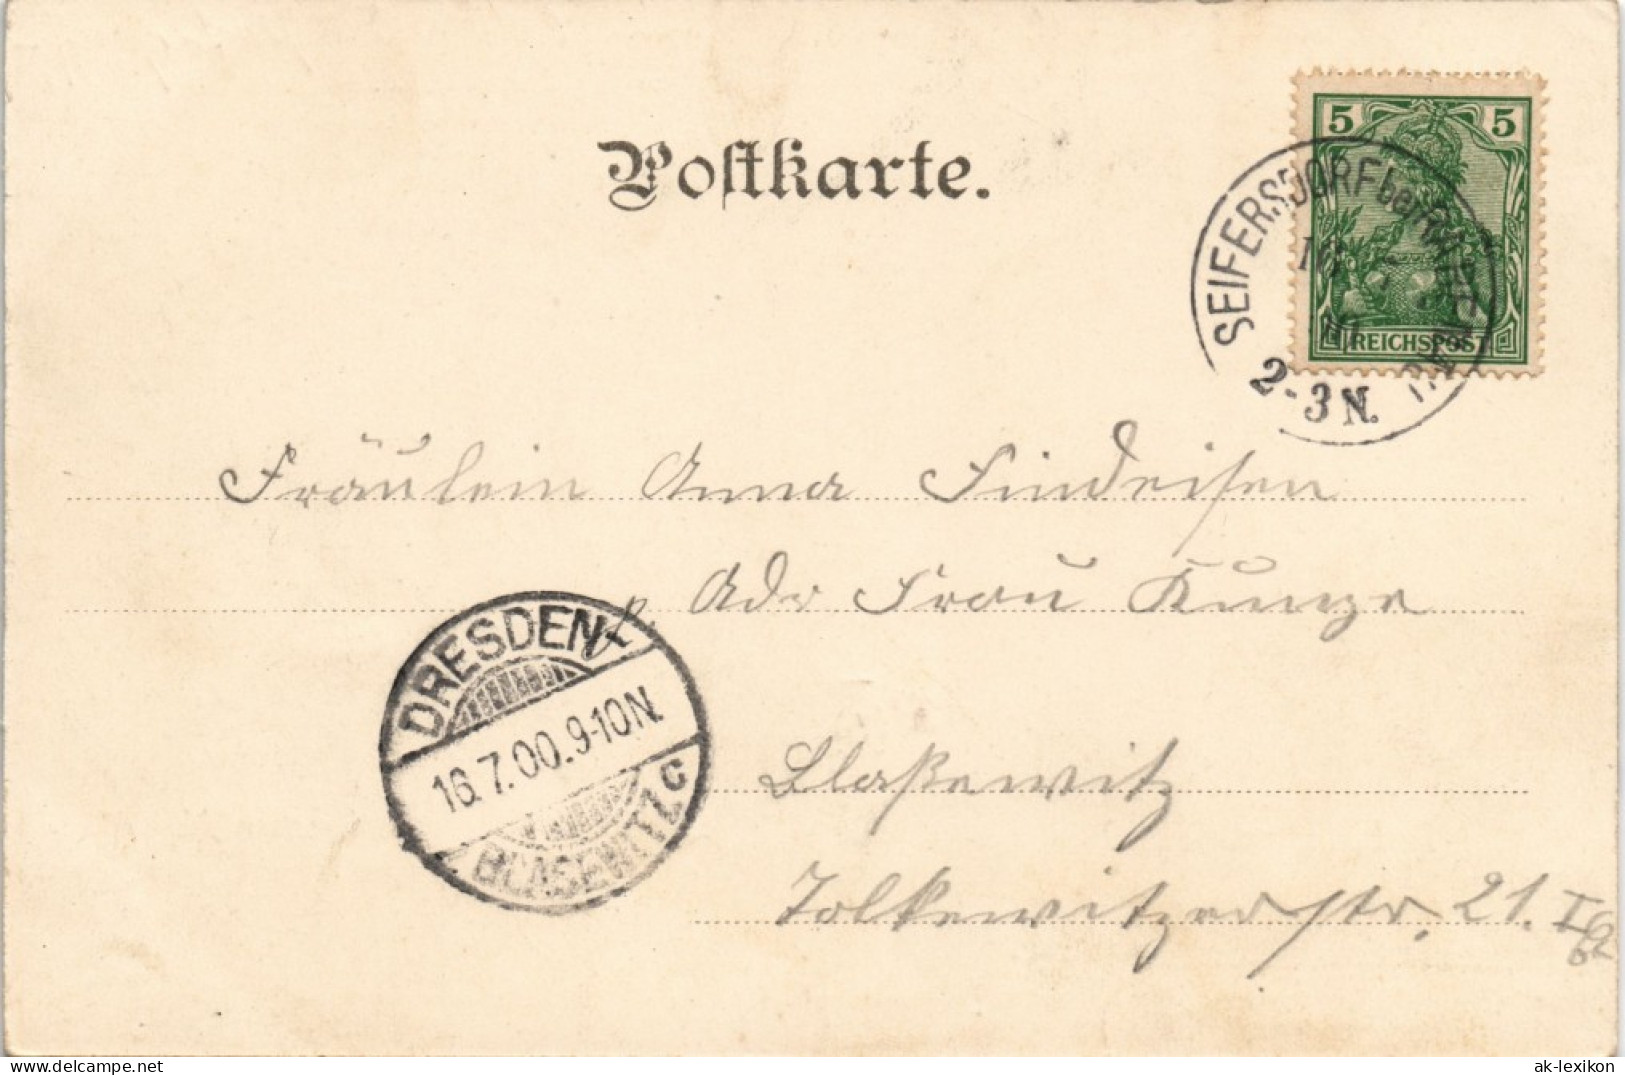 Postkarte.
5 5
REICHSPOST
SEIFERSDORF bei
16 7
2-3 N.
Fräulein Anna Findeisen
p. Adr Frau Kunze
Blaßewitz
Tolkewitzerstr. 21. I
DRESDEN-
16.7.00.9-10N.
BLASEWITZ c
ak-lexikon